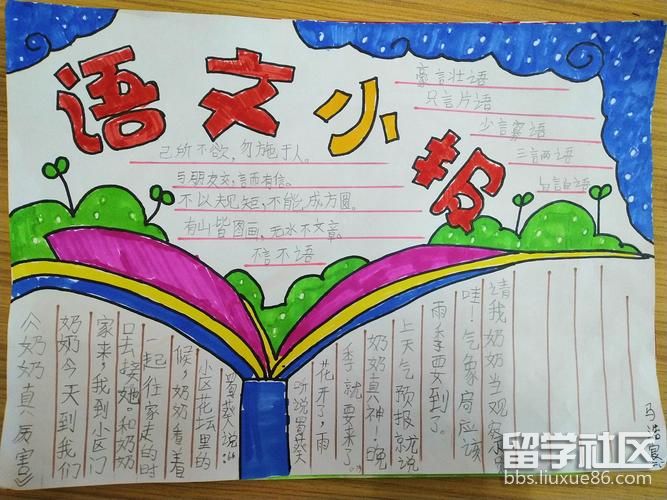 语文小报
豪言壮语
只言片语
少言寡语
三言两语
己所不欲,勿施于人。
与朋友交,言而有信。
不以规矩,不能成方圆。
有山皆图画,无水不文章。
不言不语
《奶奶真厉害》
奶奶今天到我们
家来,我到小区门
口去接她。和奶奶
一起往家走的时
候,奶奶看着
小区花坛里的
蜀葵说:“
听说蜀葵
花开了,雨
季就要来了。”
奶奶真神!晚
上天气预报就说
雨季要到了。
哇!气象局应该
请我奶奶当观察员
马浩
留学社区
bbs.liuxue86.com